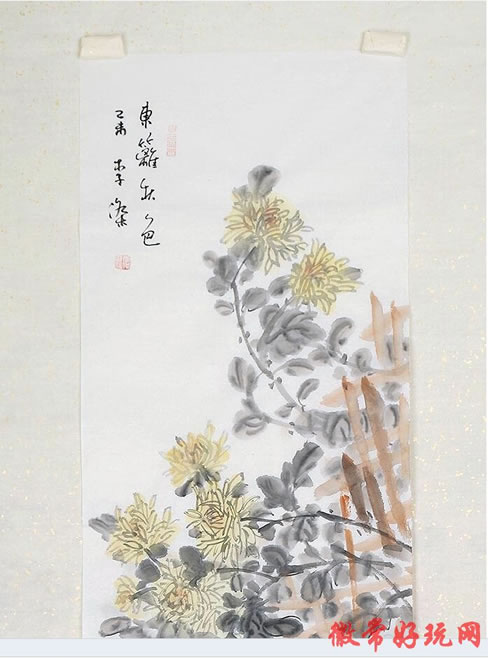 東籬秋色
乙未 李
徽常好玩网